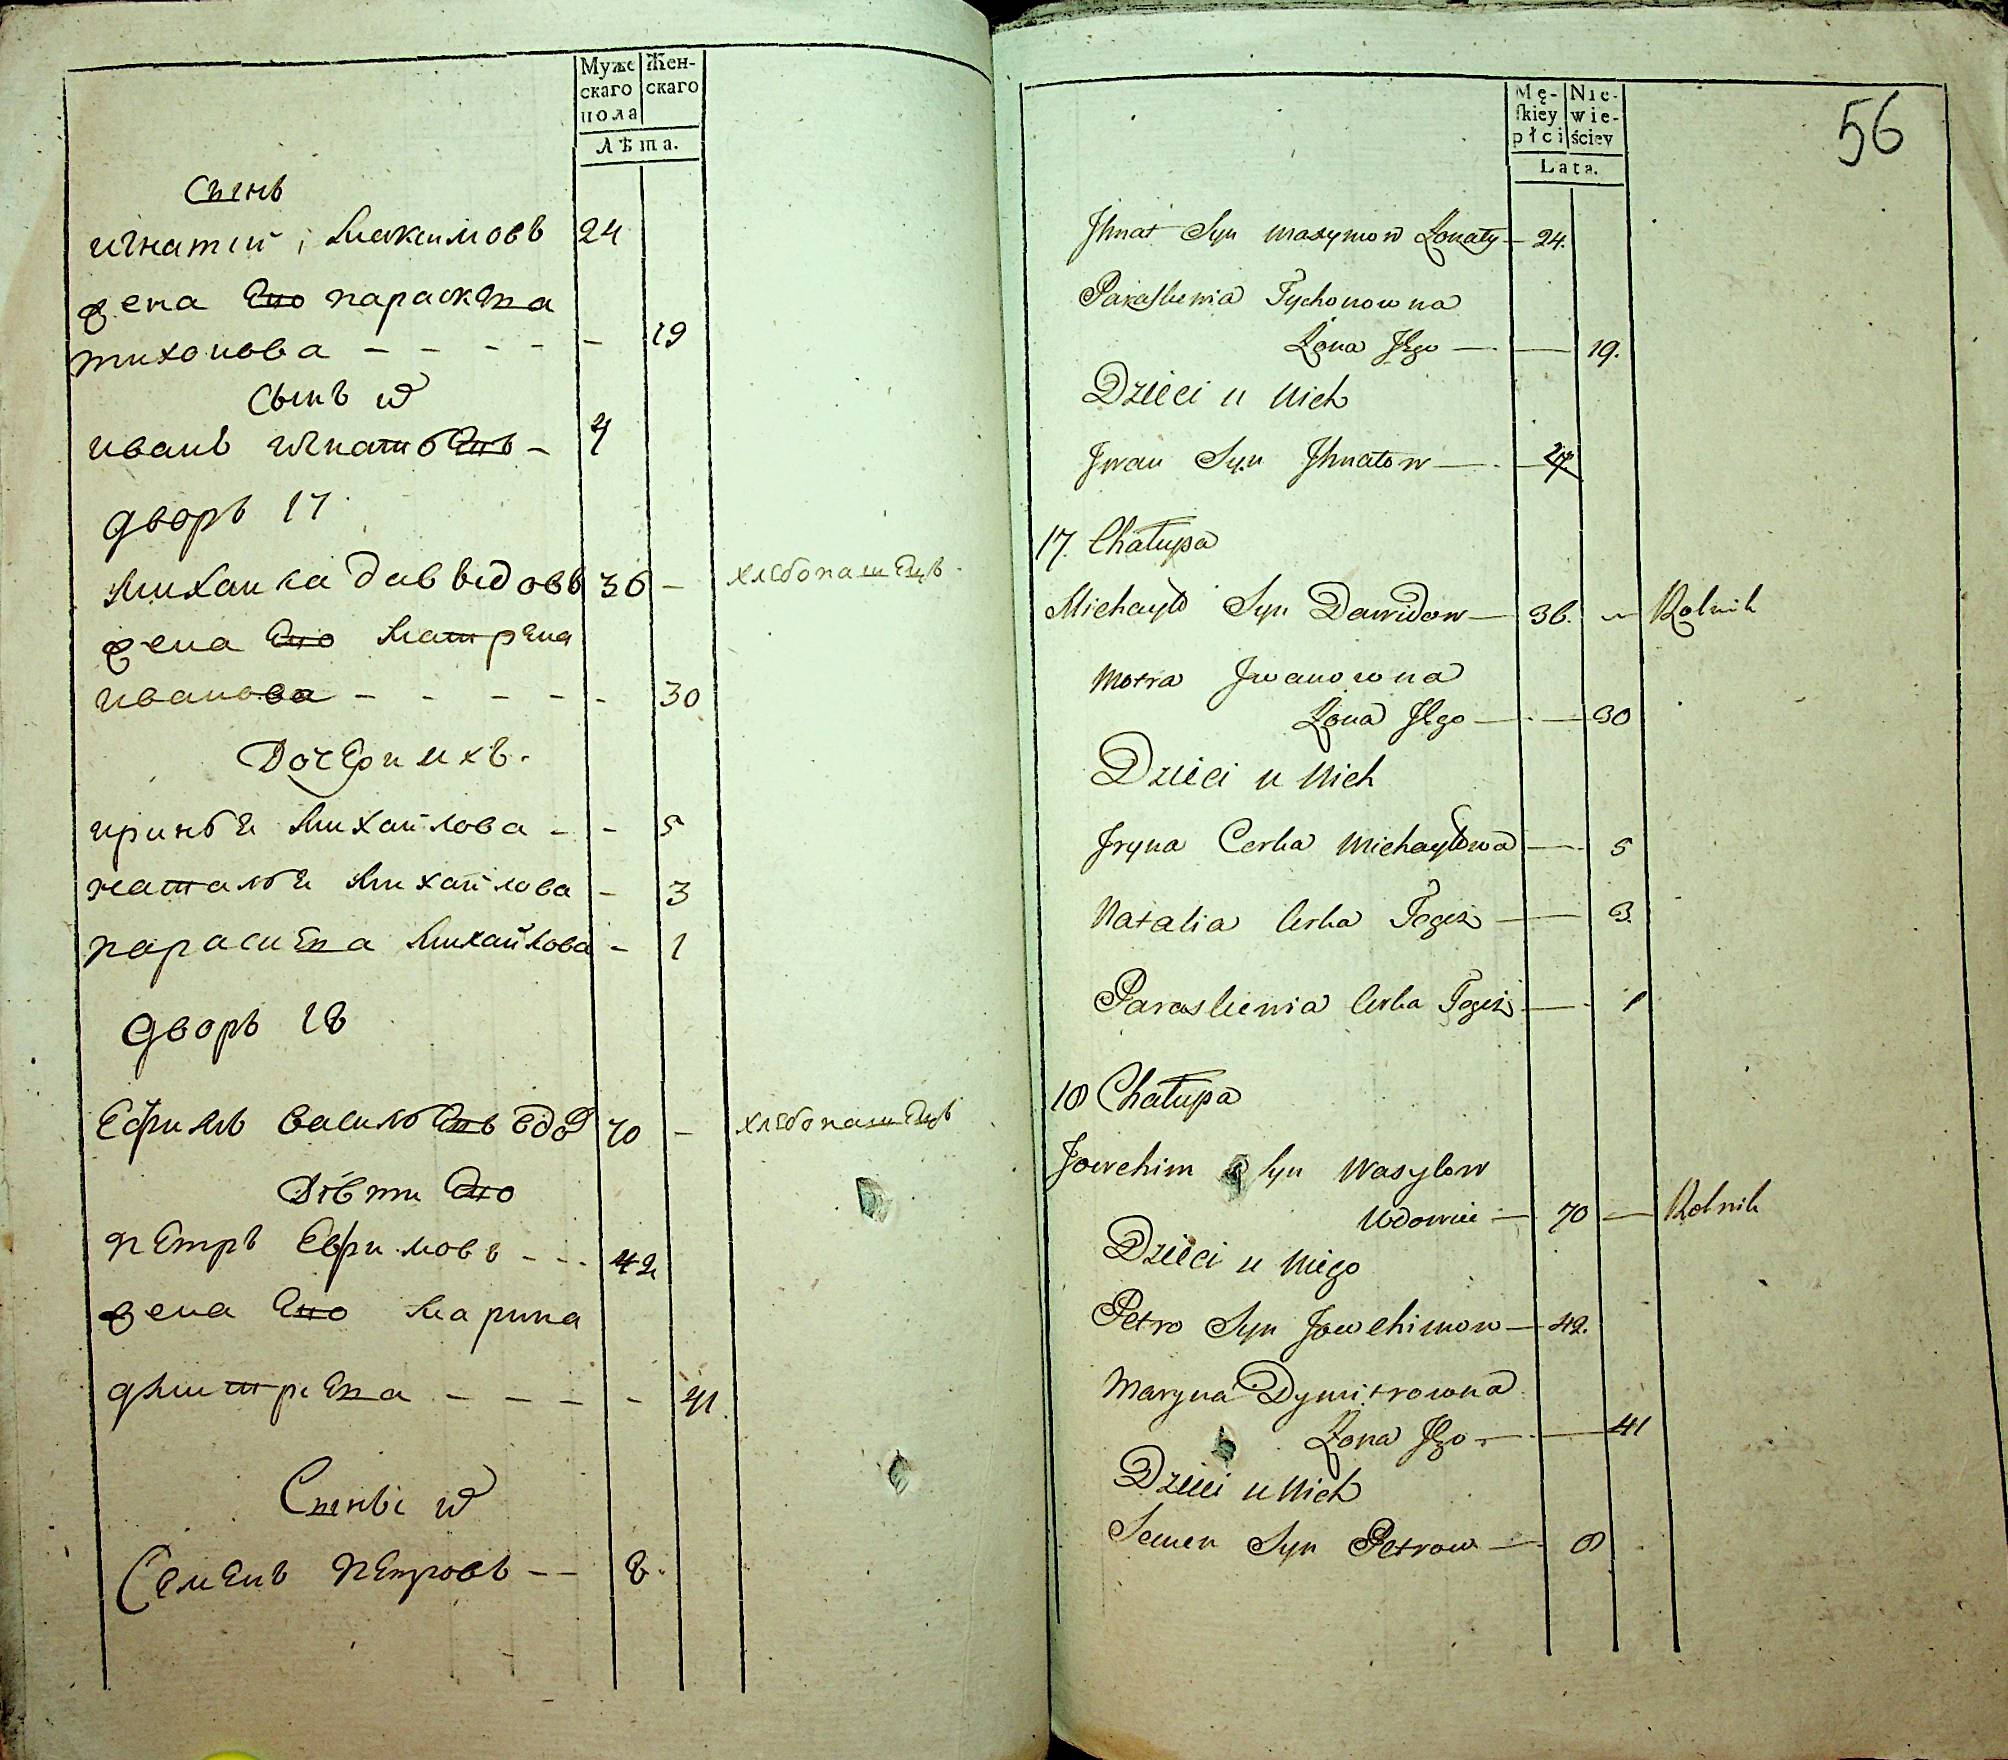 Муже Жен-
скаго скаго
пола
Лѣта.
сынъ
игнатій Максимовъ 24
жена Его параскева
тихонова - - - - - 19
Сынъ
иванъ игнатьевъ - 4
дворъ 17
Михайла давыдовъ 36 - хлебопашецъ
жена Его Матрена
иванова - - - - - 30
Дочери ихъ.
иринья Михайлова - - 5
наталья Михайлова - 3
параскева Михайлова - 1
дворъ 18
Ефимъ васильевъ вдов 70 - хлебопашецъ
Дѣти Его
пЕтръ Ефимовъ - - - 42
жена Его Марина
дмитрева - - - - - 41.
Сыны
Семенъ пЕтровъ - - 8.
Mę- Nie-
skiey wie-
płci ściey
Lata.
56
Jhnat Syn Maxymow Żonaty - 24.
Paraskewia Tychonowna
Żona Jego - — 19.
Dzieci u Nich
Jwan Syn Jhnatow - - 4
17. Chałupa
Michayło Syn Dawidow - 36. - Rolnik
Motra Jwanowna
Żona Jego - — 30
Dzieci u Nich
Jryna Corka Michayłowa — 5
Natalia Corka Tegoż — 3.
Paraskewia Corka Tegoż — 1
18 Chałupa
Jowchim Syn Wasylow
Wdowiec - 70 - Rolnik
Dzieci u Niego
Petro Syn Jowchimow - 42.
Maryna Dymitrowna
Żona Jego - — 41
Dzieci u Nich
Semen Syn Petrow - 8